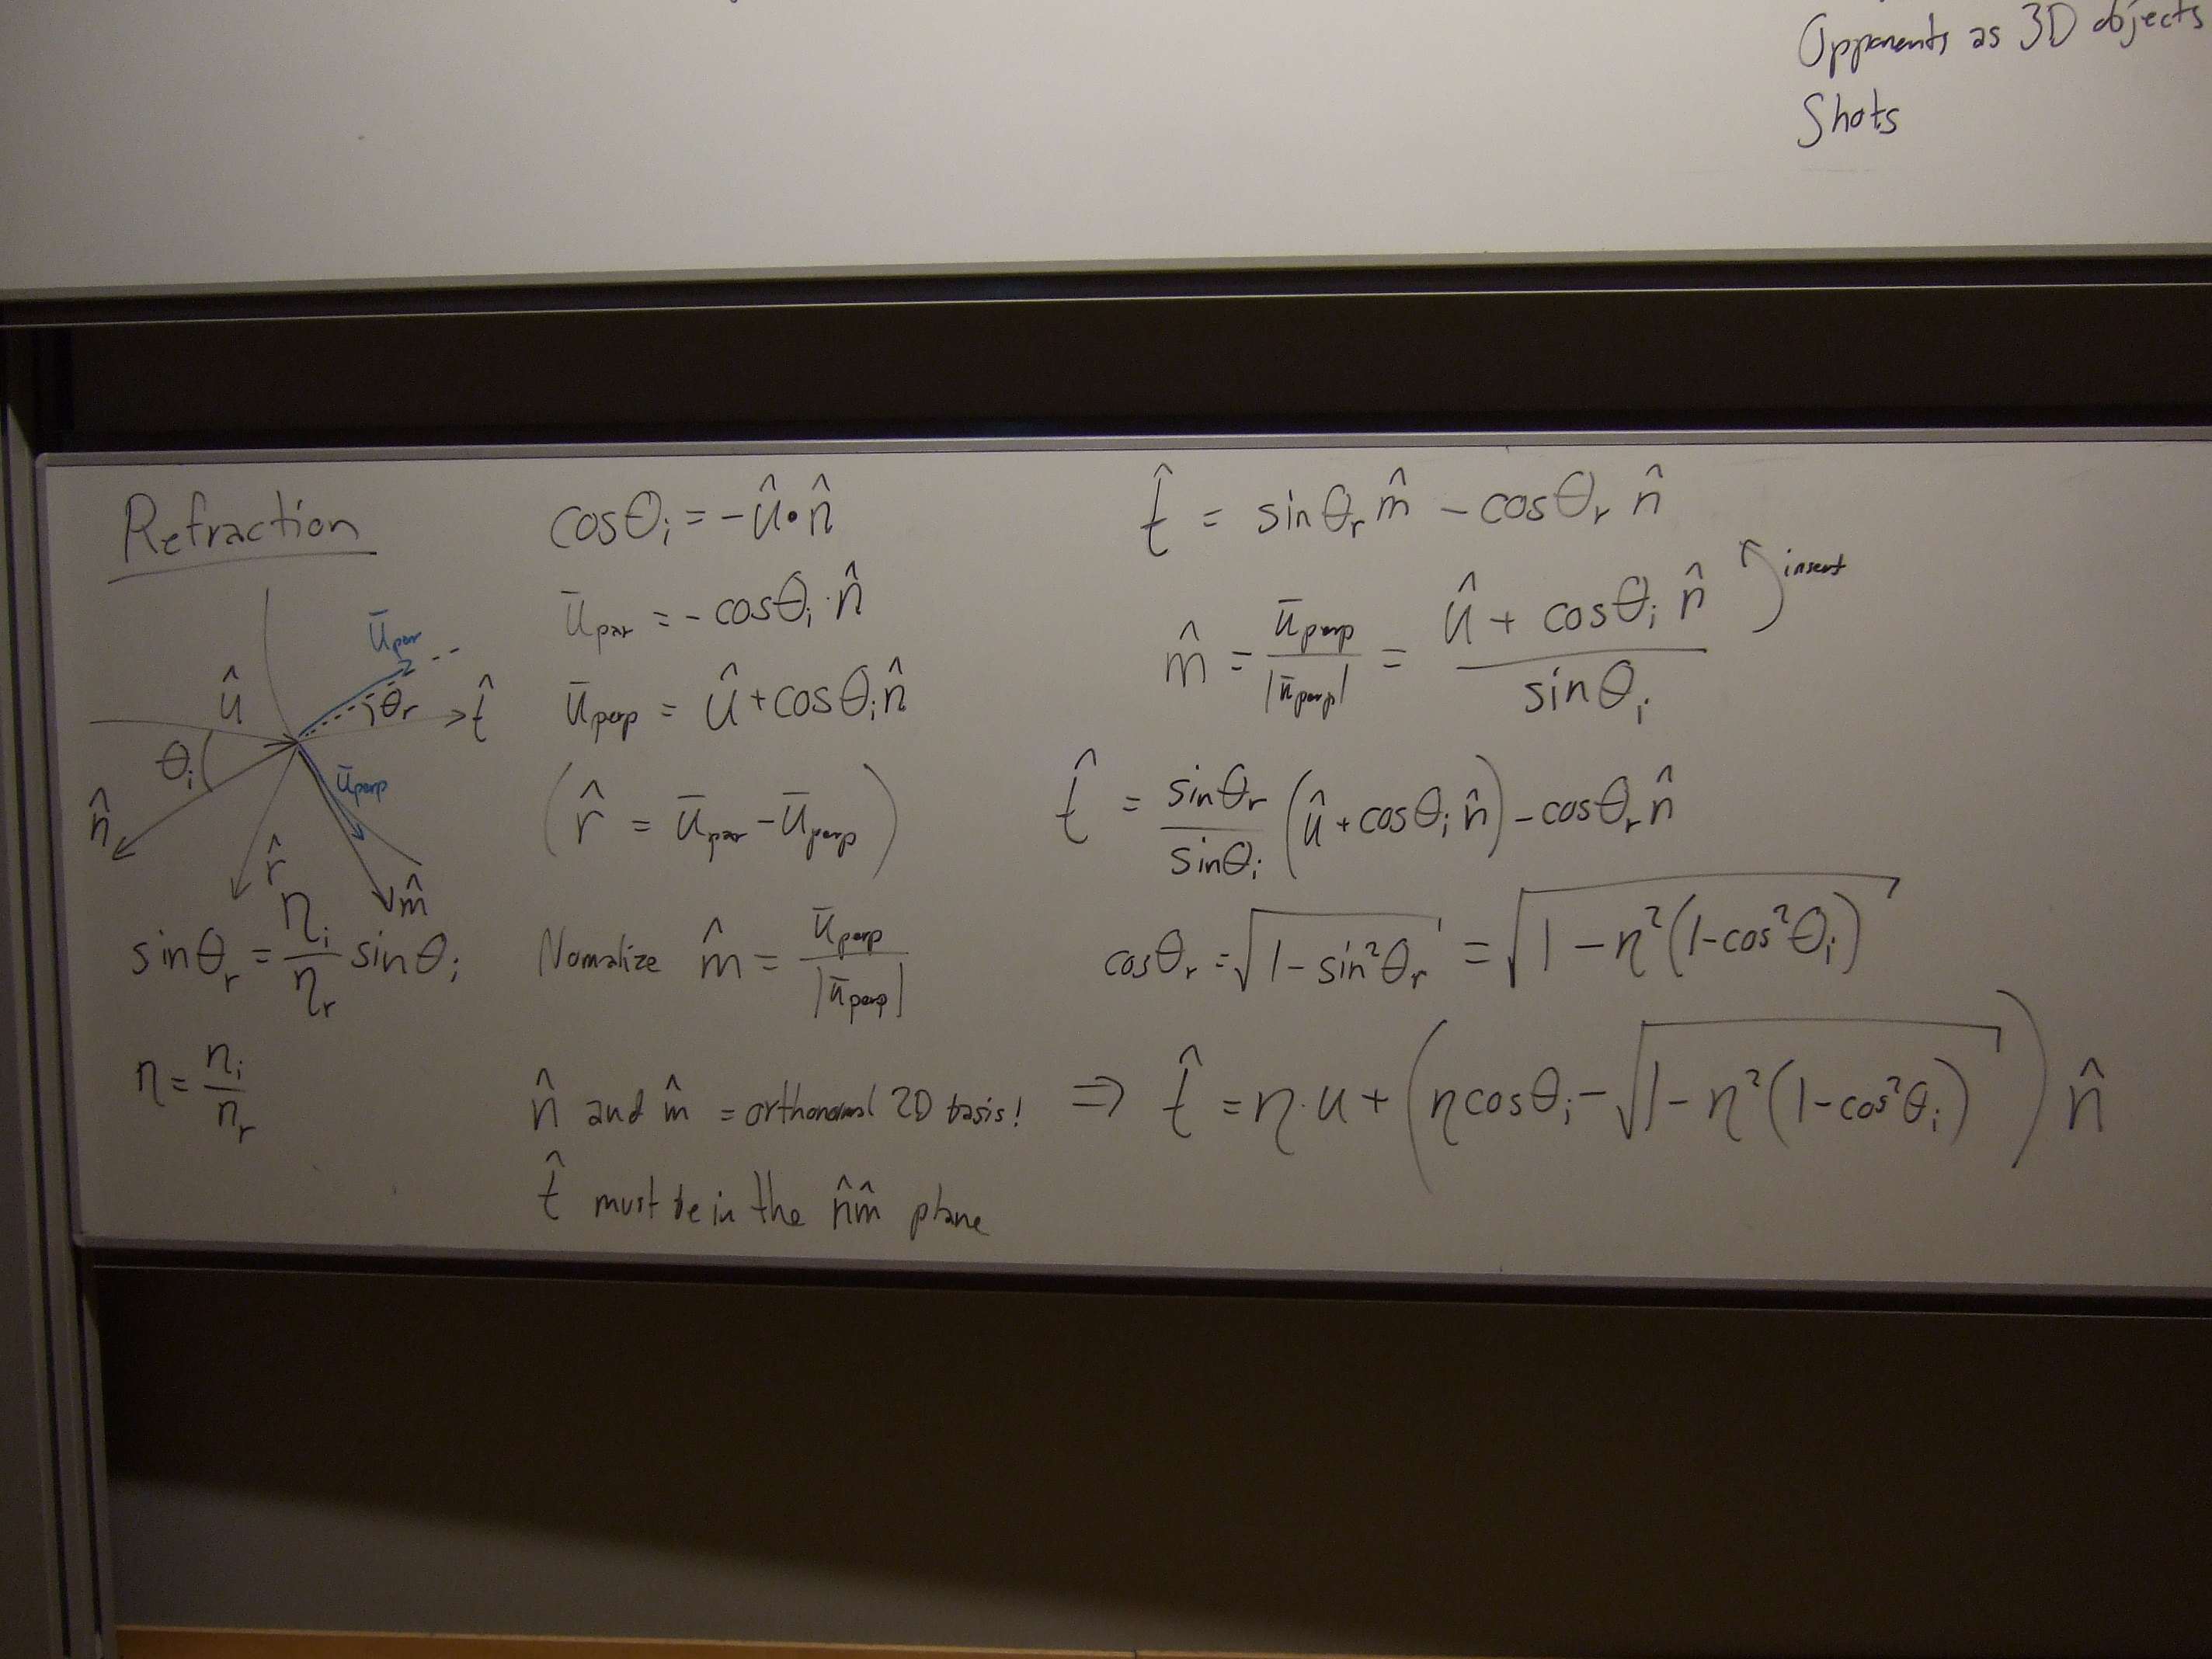 Opponents as 3D objects
Shots
Refraction
û
ū_par
θ_r
t̂
θ_i
ū_perp
n̂
r̂
m̂
sinθ_r = η_i/η_r sinθ_i
η = η_i/η_r
cosθ_i = -û•n̂
ū_par = -cosθ_i·n̂
ū_perp = û+cosθ_i n̂
(r̂ = ū_par - ū_perp)
Nomalize m̂ = ū_perp/|ū_perp|
n̂ and m̂ = orthonormal 2D basis!
t̂ must be in the n̂m̂ plane
t̂ = sinθ_r m̂ - cosθ_r n̂
insert
m̂ = ū_perp/|ū_perp| = (û + cosθ_i n̂)/sinθ_i
t̂ = sinθ_r/sinθ_i (û+cosθ_i n̂) - cosθ_r n̂
cosθ_r = √(1-sin²θ_r) = √(1-η²(1-cos²θ_i))
⇒ t̂ = η·u + (ηcosθ_i - √(1-η²(1-cos²θ_i))) n̂